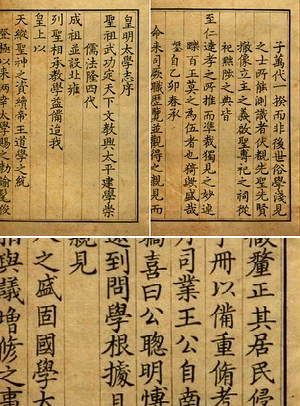 皇明太學志序
聖祖武功定天下文教興太平建學崇
儒法隆四代
成祖並設北雍
列聖相承教學益備迨我
皇上以
天縱聖神之資纘帝王道學之統
登極以来再幸太學賜之勅諭髦俊
子萬代一揆而非後世俗學淺見
之士所能測識者伏覩先聖先賢
撤像立主之義啟聖專祀之祠從
祀黜陟之典皆
至仁達孝之所推而準裁獨見之妙
躒百王莫之為伍者也猗與盛哉
自乙卯春承
命来司厥職歷覽並觀得之親見而
釐正其居民侵
手册以備重脩考
方司業王公自南
稿喜曰公聰明博
遠到問學根據
親見
之盛固國學大
與議增修之事